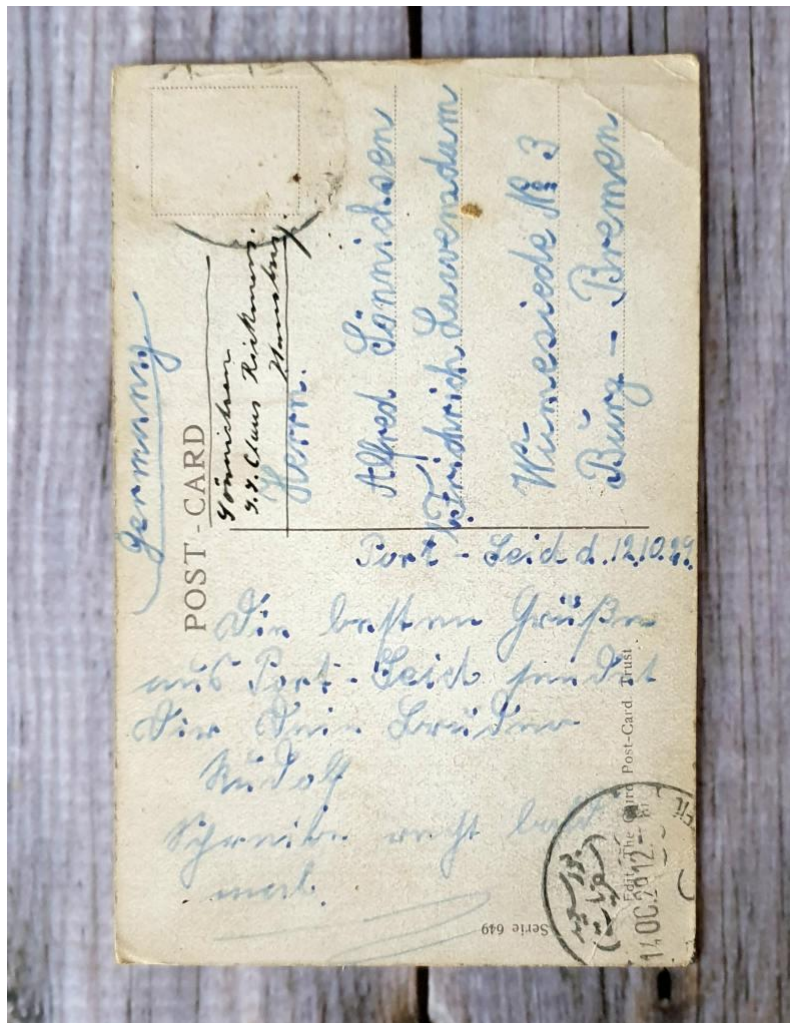 Germany
POST-CARD
Sönnichsen
Claus Rickmers.
Hamburg.
Herrn.
Alfred Sönnichsen
Fridrich
Wümesiede № 3
Burg - Bremen
Port - Seid d. 12.10.29.
Die besten Grüße
aus Port-Seid sendet
Dir Dein Bruder
Rudolf
Schreibe recht bald
mal.
Edit. The Cairo Post-Card Trust
Serie 649
بور سعيد
14 OC. 29 12-